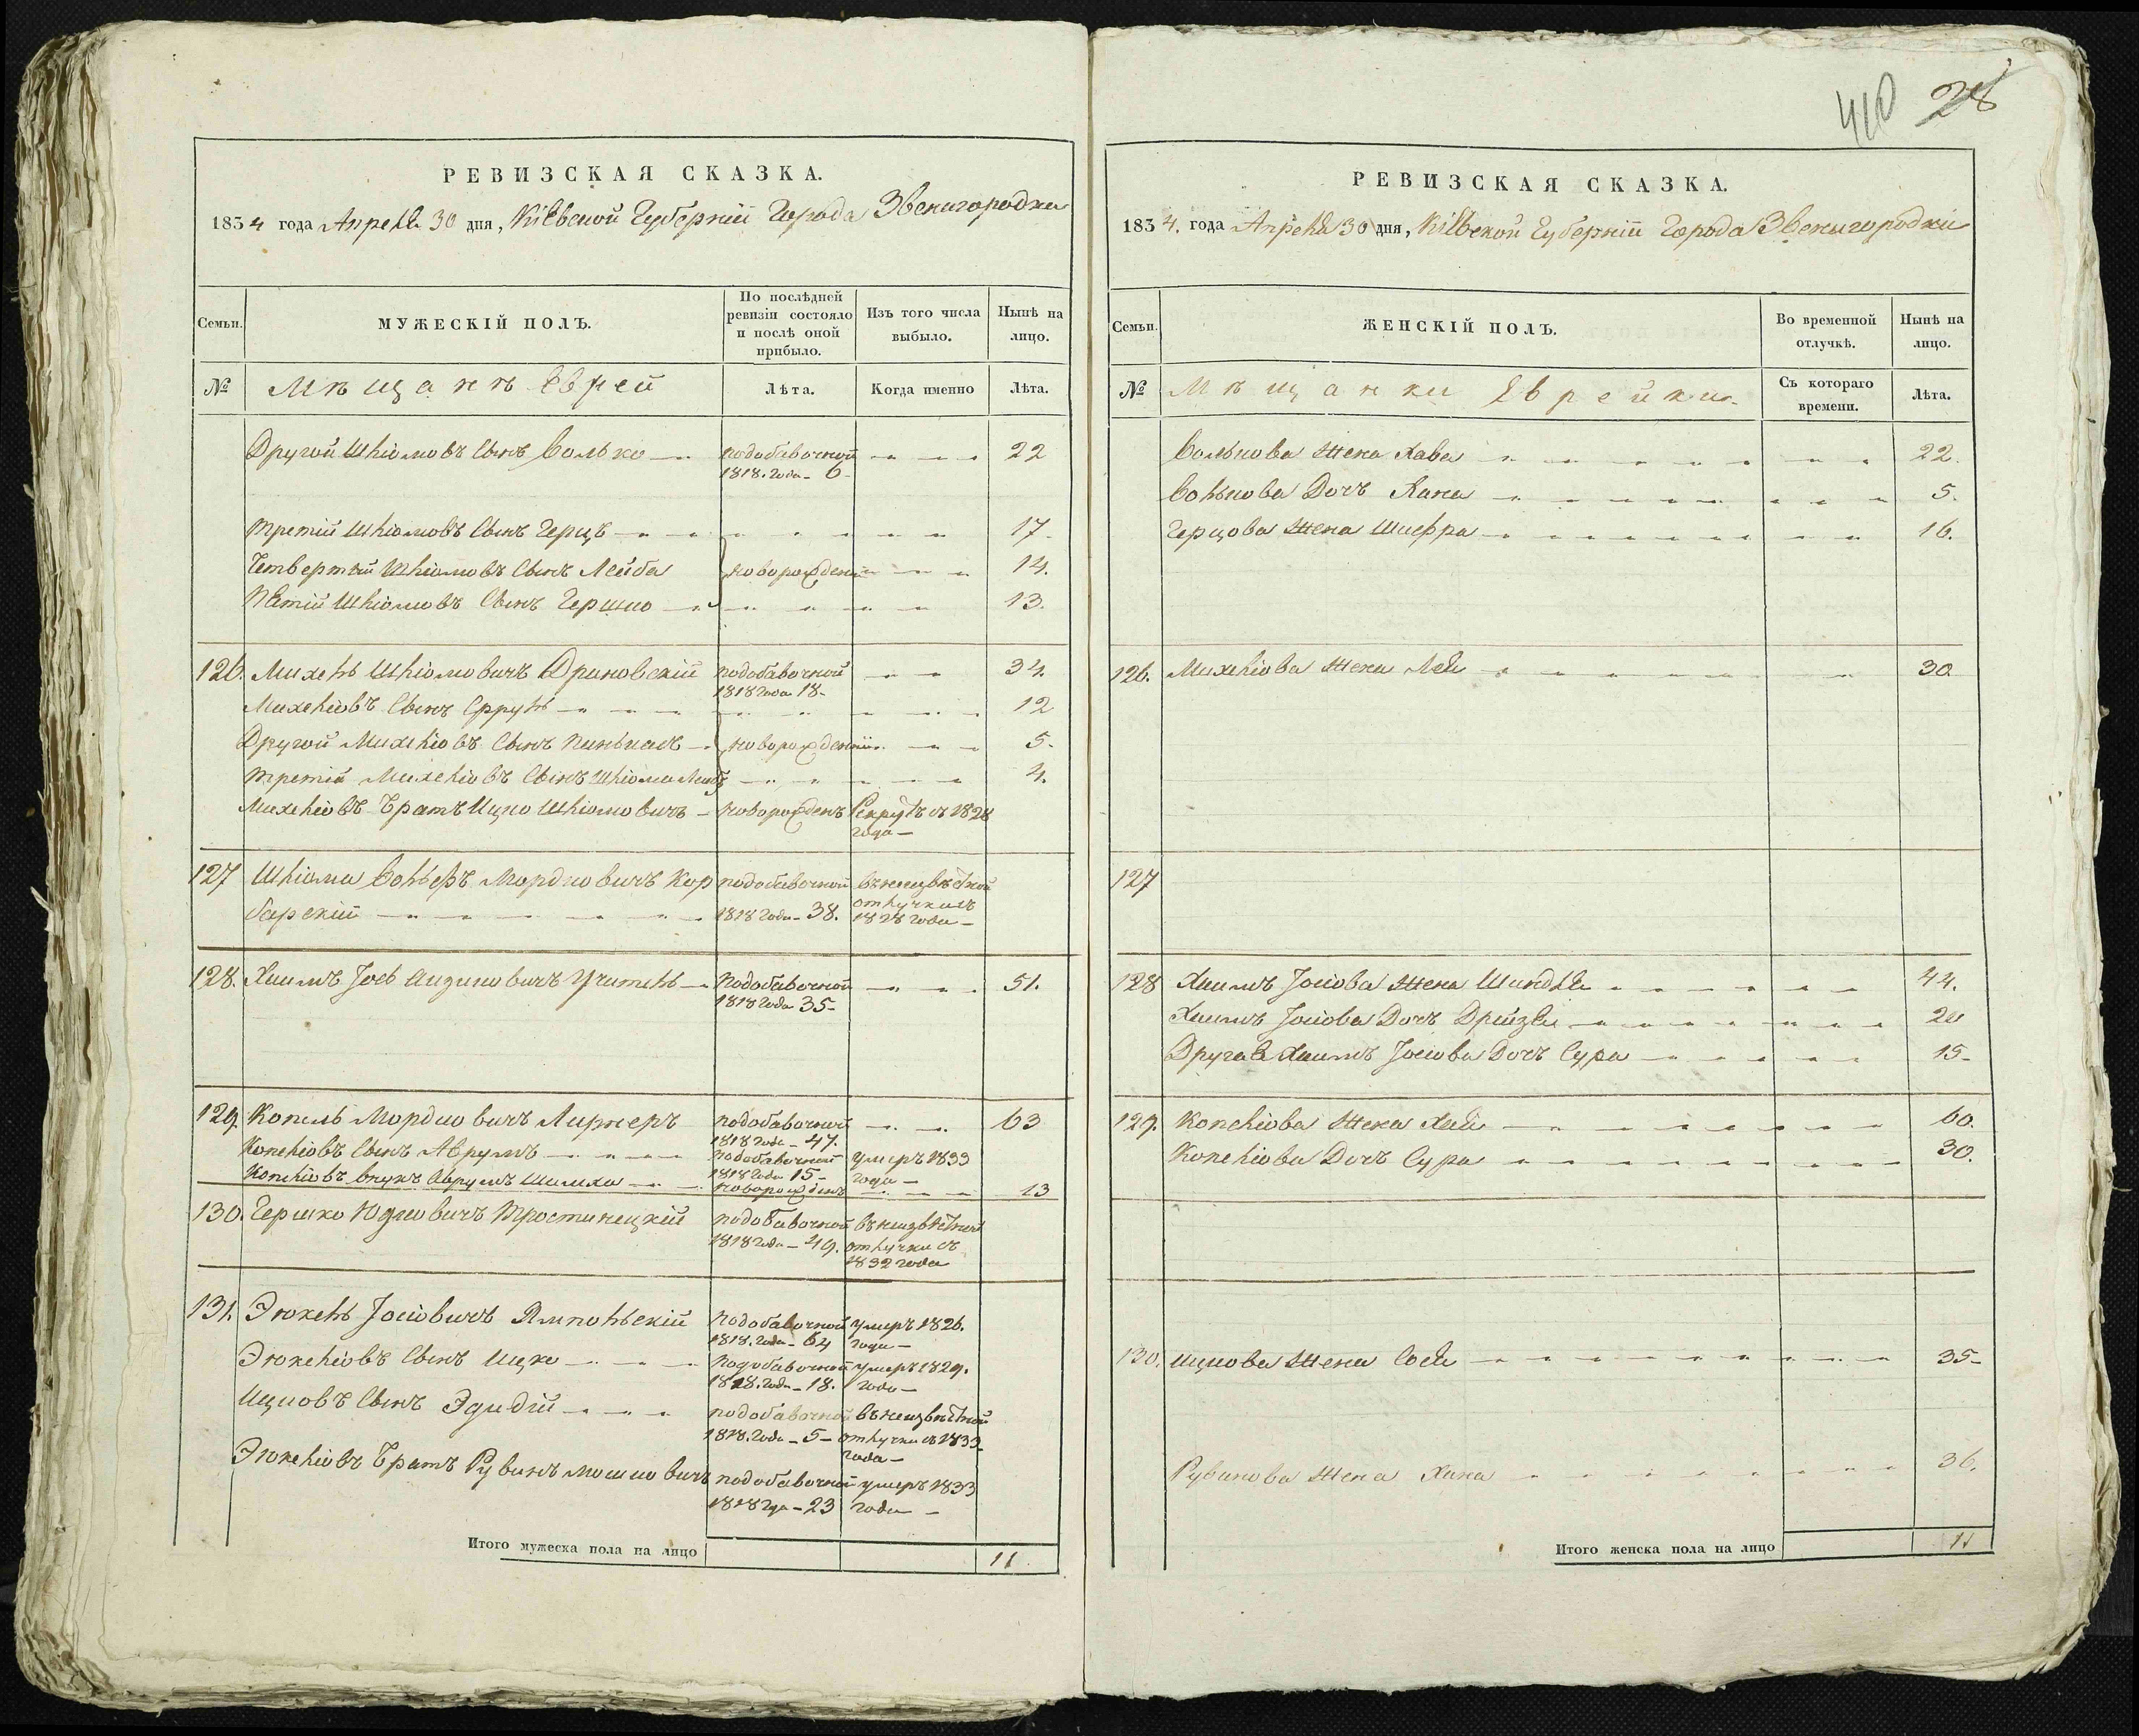 410 28
РЕВИЗСКАЯ СКАЗКА.
1834 года Апреля 30 дня, Кіевской Губерніи Города Звенигородки
Семьи. МУЖЕСКІЙ ПОЛЪ. По послѣдней ревизіи состояло и послѣ оной прибыло. Изъ того числа выбыло. Нынѣ на лицо.
№ Мѣщанъ Еврей Лѣта. Когда именно Лѣта.
Другой Шліомовъ Сынъ Волько подобавочной 22
1818. Года - 6
третій Шліомовъ Сынъ Герцъ 17
Четвертый Шліомовъ Сынъ Лейба новорожденни 14.
Пятій Шліомовъ Сынъ Гершко 13.
126. Михель Шліомовичъ Драновскій подобавочной 34.
1818 Года 18
Михеліовъ Сынъ Сруль 12
Другой Михеліовъ Сынъ Пинькасъ новорожденни 5.
третій Михеліовъ Сынъ Шліома 4.
Михеліовъ Братъ Ицко Шліомовичъ новорожденъ Рекрутъ съ 1828
года
127 Шліома Вольфъ Мордковичъ Кор подобавочной въ неизвѣстной
барскій 1818 Года - 38. отлучки съ
1828 года
128. Хаимъ Іось Аизиковичъ Учитель подобавочной 51.
1818 Года 35
129. Копель Мордковичъ Лирнеръ подобавочной 63
1818 Года - 47.
Копеліовъ Сынъ Аврумъ подобавочной умеръ 1833
1818 Года 15 года
Копеліовъ внукъ Аврумъ новорожденъ 13
130. Гершко Юдковичъ Тростинецкій подобавочной въ неизвѣстной
1818 Года - 49. отлучки съ
1832 года
131. Зюкель Іосіовичъ Ямпольскій подобавочной умеръ 1826.
1818. Года - 64 года
Зюкеліовъ Сынъ Ицко подобавочной умеръ 1829.
1818. Года - 18. года
Ицковъ Сынъ подобавочной въ неизвѣстной
1818. Года - 5 отлучки съ 1833
года
Зюкеліовъ Братъ Рувинъ Мошковичъ подобавочной умеръ 1833
1818 года - 23 года
Итого мужеска пола на лицо 11
РЕВИЗСКАЯ СКАЗКА.
1834. года Апреля 30 дня, Кіевской Губерніи Города Звенигородки
Семьи. ЖЕНСКІЙ ПОЛЪ. Во временной отлучкѣ. Нынѣ на лицо.
№ Мѣщанки Еврейки Съ котораго времени. Лѣта.
Волькова Жена Хава 22.
Волькова Дочъ Хана 5.
Герцова Жена Шифра 16.
126. Михеліова Жена Лея 30
127
128 Хаимъ Іосіова Жена Шиндля 44.
Хаимъ Іосіова Дочъ Дрейзя 20
Другая Хаимъ Іосіова Дочъ Сура 15
129. Копеліова Жена Хая 60.
Копеліова Дочъ Сура 30.
130. Ицкова Жена Сося 35
Рувинова Жена Хана 36.
Итого женска пола на лицо 11